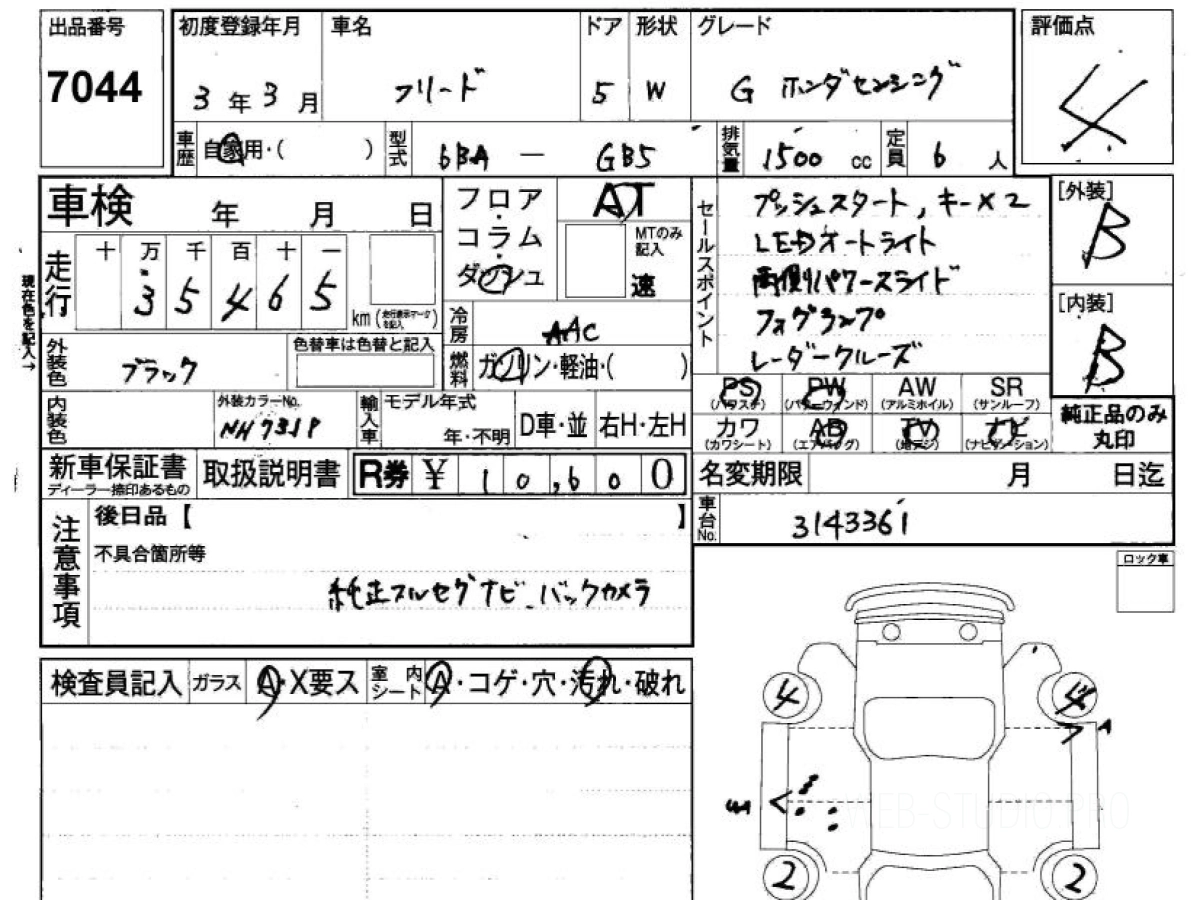 出品番号
7044
初度登録年月
3年3月
車名
フリード
ドア
5
形状
W
グレード
G ホンダセンシング
評価点
4
車歴
自家用・( )
型式
6BA - GB5
排気量
1500 cc
定員
6 人
車検 年 月 日
フロア・コラム・ダッシュ
AT
MTのみ記入
速
セールスポイント
プッシュスタート, キー×2
LEDオートライト
両側パワースライド
フォグランプ
レーダークルーズ
[外装]
B
[内装]
B
現在色を記入→
走行
十 万 千 百 十 一
3 5 4 6 5
km (走行表示マークを記入)
冷房
AAC
外装色
ブラック
色替車は色替と記入
燃料
ガソリン・軽油・( )
内装色
外装カラーNo.
NH731P
輸入車
モデル年式
年・不明
D車・並
右H・左H
PS
(パワステ)
PW
(パワーウィンド)
AW
(アルミホイル)
SR
(サンルーフ)
カワ
(カワシート)
AB
(エアバッグ)
TV
(地デジ)
ナビ
(ナビゲーション)
純正品のみ
丸印
新車保証書
ディーラー捺印あるもの
取扱説明書
R券 ¥ 10,600
名変期限 月 日迄
車台No.
3143361
注意事項
後日品【 】
不具合箇所等
純正フルセグナビ バックカメラ
ロック車
検査員記入
ガラス
A・X要ス
室内シート
A・コゲ・穴・汚れ・破れ
4
4
A
2
2
WEB-STUDIO.PRO